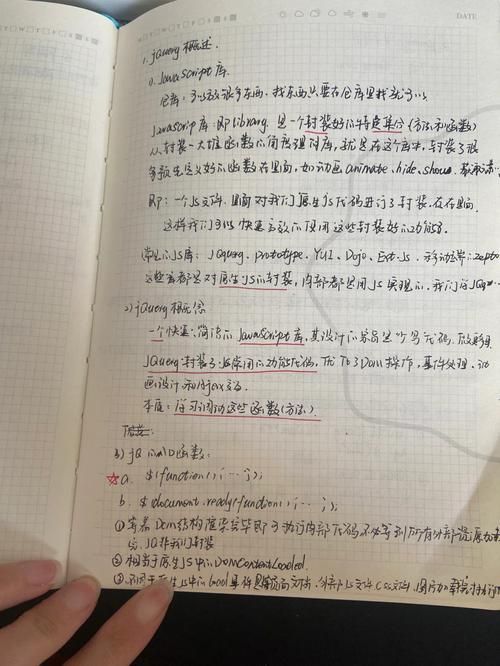 DATE
1. jQuery 概述.
1). JavaScript 库.
仓库: 可以放很多东西, 找东西只要在仓库里找就可以
Javascrip 库: 即 library, 是一个封装好的特定集合 (方法和函数)
从封装一大堆函数的角度理解库, 就是在这个库中, 封装了很
多预先定义好的函数在里面, 如动画 animate、hide、show、
即: 一个JS文件, 里面对我们原生js代码进行了封装, 存在里面.
这样我们可以快速高效的使用这些封装好的功能了.
常见的JS库: JQuery、prototype、YUI、Dojo、Ext Js、移动端 zepto
这些库都是对原生JS的封装, 内部都是用JS实现的, 我们学JQ
2) jQuery 概念
一个快速、简洁的 JavaScript 库, 其设计的宗旨是
JQuery 封装了JS常用的功能代码, 优化了Dom操作, 事件处理、动
画设计和Ajax交互.
本质: 学习调用这些函数(方法).
3) jQ 的入口函数:
☆ a. $(function(){ … });
b. $ document.ready(function(){ … });
① 等着Dom结构渲染完毕即可执行内部代码不必等到所有外部资源加载
JQ帮我们封装
② 相当于原生JS中的 DOMContentLoaded.
③ 不同于原生JS中的 load 是等页面文档、外部JS文件、CSS文件、图片加载完